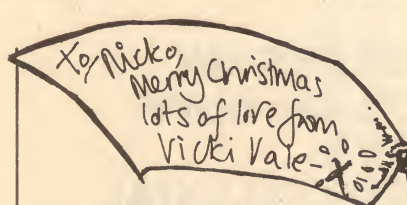 To, Nicko,
Merry Christmas
lots of love from
Vicki Vale - X